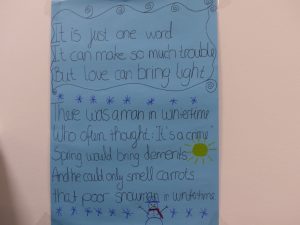 It is just one word
It can make so much trouble
But love can bring light
There was a man in wintertime
Who often thought: It's a crime
Spring would bring dements
And he could only smell carrots
that poor snowman in wintertime